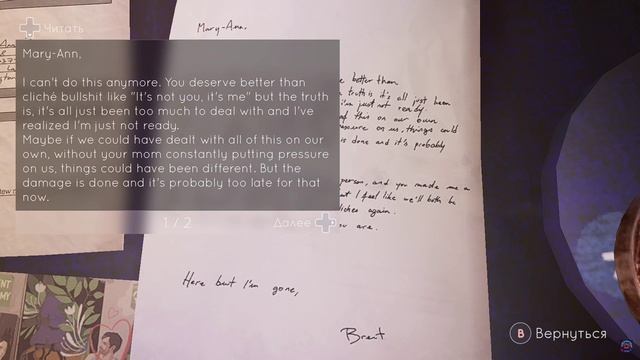 Читать
Mary-Ann,
Mary-Ann,
I can't do this anymore. You deserve better than
cliché bullshit like "It's not you, it's me" but the truth
is, it's all just been too much to deal with and I've
realized I'm just not ready.
Maybe if we could have dealt with all of this on our
own, without your mom constantly putting pressure
on us, things could have been different. But the
damage is done and it's probably too late for that
now.
better than
truth is it's all just been
I'm just not ready.
this on our own
pressure on us, things could
is done and it's probably
person, and you made me a
but I feel like we'll both be
cliches again.
you are.
1 / 2
Далее
Here but I'm gone,
Brent
B Вернуться